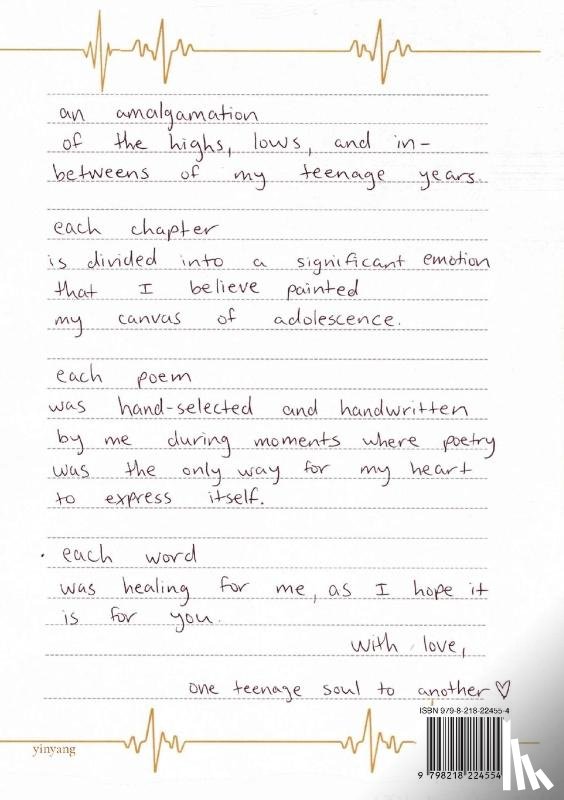 an amalgamation
of the highs, lows, and in-
betweens of my teenage years.
each chapter
is divided into a significant emotion
that I believe painted
my canvas of adolescence.
each poem
was hand-selected and handwritten
by me during moments where poetry
was the only way for my heart
to express itself.
each word
was healing for me, as I hope it
is for you.
with love,
one teenage soul to another ♡
ISBN 979-8-218-22455-4
9 798218 224554
yinyang